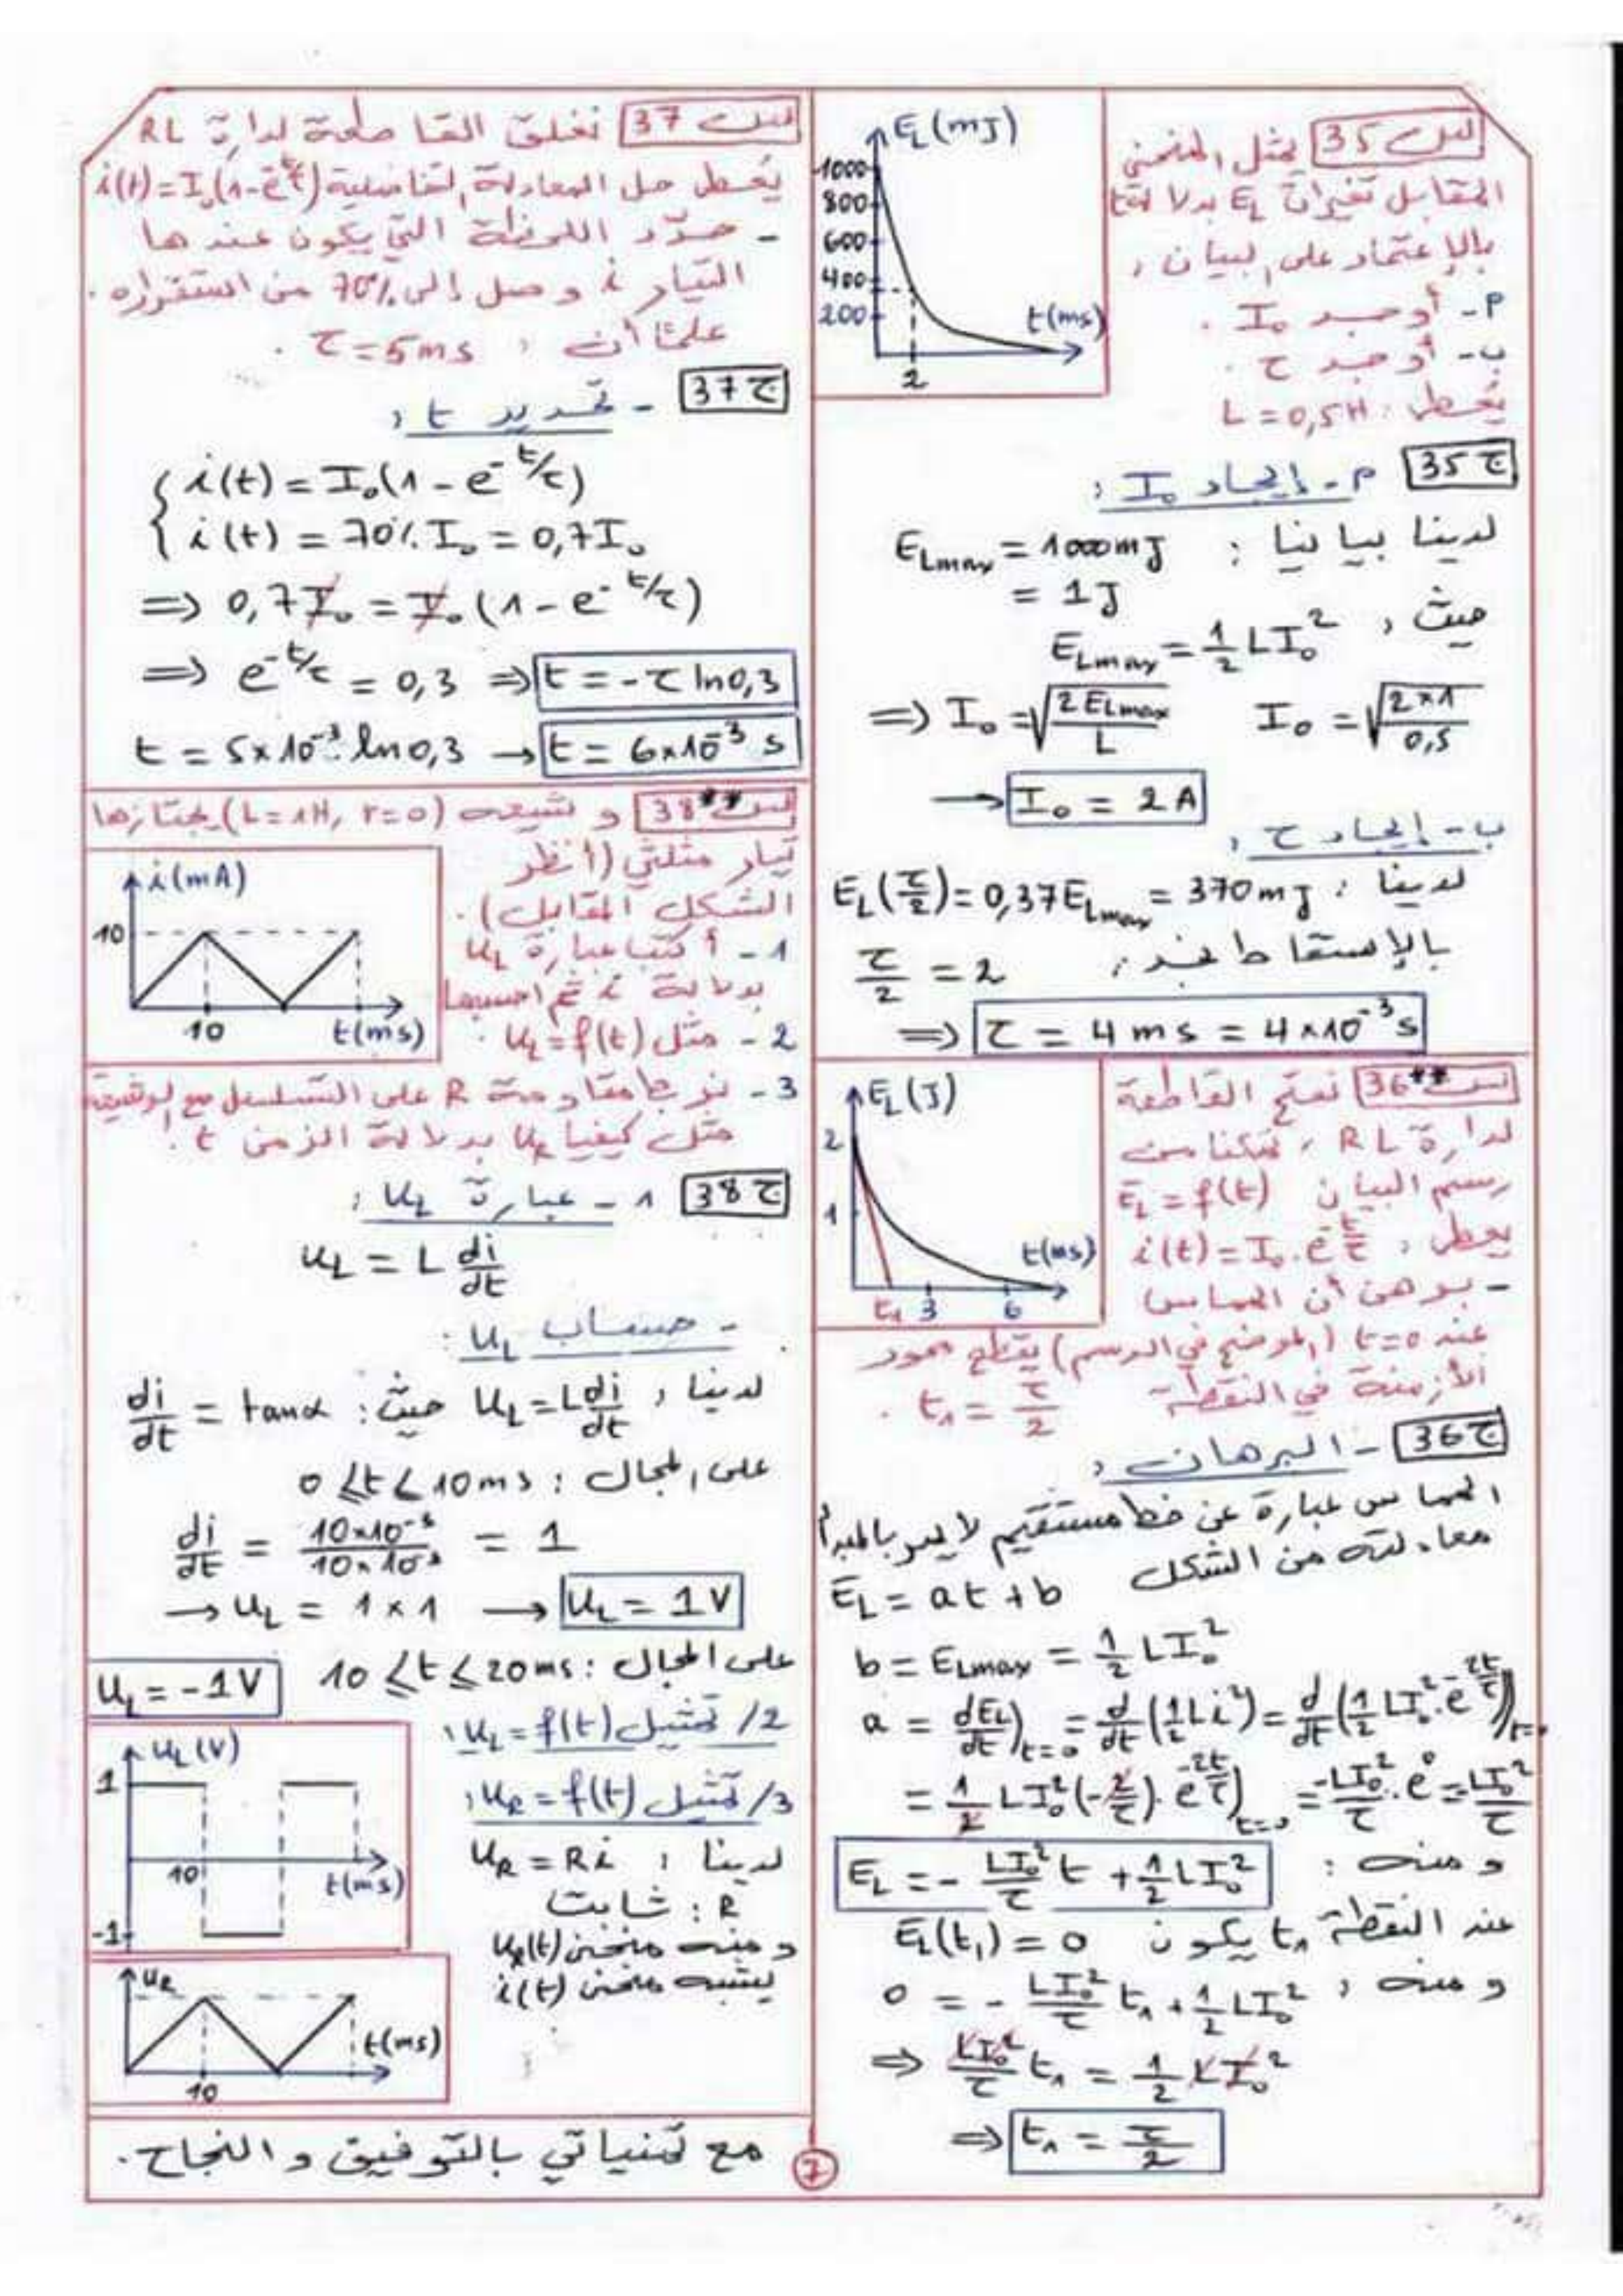 س35 يمثل المنحنى
المقابل تغيرات E_L بدلالة t
بالإعتماد على البيان :
P- أوجد I₀ .
ب- أوجد τ .
يُعطى : L = 0,5H
E_L(mJ)
1000
800
600
400
200
2
t(ms)
ج35 P- إيجاد I₀ :
لدينا بيانيا : E_Lmax = 1000mJ
= 1J
حيث : E_Lmax = 1/2 LI₀²
⇒ I₀ = √(2E_Lmax / L) I₀ = √(2×1 / 0,5)
→ I₀ = 2A
ب- إيجاد τ :
لدينا : E_L(τ/2) = 0,37E_Lmax = 370mJ
بالإسقاط نجد : τ/2 = 2
⇒ τ = 4ms = 4×10⁻³s
س36** نفتح القاطعة
لدارة RL ، تمكنا من
رسم البيان E_L = f(t)
يعطى : i(t) = I₀.e^(-t/τ)
- برهن أن المماس
عند t=0 (الموضح في الرسم) يقطع محور
الأزمنة في النقطة t₁ = τ/2 .
E_L(J)
2
1
t₁ 3 6
t(ms)
ج36 - البرهان :
المماس عبارة عن خط مستقيم لا يمر بالمبدأ
معادلته من الشكل E_L = at + b
b = E_Lmax = 1/2 LI₀²
a = dE_L/dt)_t=0 = d/dt(1/2 Li²) = d/dt(1/2 LI₀².e^(-2t/τ))_t=0
= 1/2 LI₀²(-2/τ).e^(-2t/τ))_t=0 = -LI₀²/τ . e⁰ = -LI₀²/τ
ومنه : E_L = - LI₀²/τ t + 1/2 LI₀²
عند النقطة t₁ يكون E_L(t₁) = 0
ومنه : 0 = - LI₀²/τ t₁ + 1/2 LI₀²
⇒ LI₀²/τ t₁ = 1/2 LI₀²
⇒ t₁ = τ/2
س37 نغلق القاطعة لدارة RL
يُعطى حل المعادلة التفاضلية i(t) = I₀(1-e^(-t/τ))
- حدّد اللحظة التي يكون عندها
التيار i وصل إلى 70% من استقراره .
علمًا أن : τ = 5ms .
ج37 - تحديد t :
i(t) = I₀(1 - e^(-t/τ))
i(t) = 70% I₀ = 0,7I₀
⇒ 0,7I₀ = I₀(1 - e^(-t/τ))
⇒ e^(-t/τ) = 0,3 ⇒ t = -τ ln0,3
t = 5×10⁻³. ln0,3 → t = 6×10⁻³ s
س38** وشيعة (L=1H, r=0) يجتازها
تيار مثلثي (أنظر
الشكل المقابل) .
1- أكتب عبارة u_L
بدلالة i ثم احسبها
2- مثل u_L = f(t) .
3- نربط مقاومة R على التسلسل مع الوشيعة
مثل كيفيا u_R بدلالة الزمن t .
i(mA)
10
10
t(ms)
ج38 1- عبارة u_L :
u_L = L di/dt
- حساب u_L :
لدينا : u_L = L di/dt حيث : di/dt = tanα
على المجال : 0 ≤ t ≤ 10ms
di/dt = 10×10⁻³ / 10×10⁻³ = 1
→ u_L = 1×1 → u_L = 1V
على المجال : 10 ≤ t ≤ 20ms u_L = -1V
2/ تمثيل u_L = f(t) :
3/ تمثيل u_R = f(t) :
لدينا : u_R = Ri
R : ثابت
ومنه منحنى u_R(t)
يشبه منحنى i(t)
u_L(V)
1
10
t(ms)
-1
u_R
t(ms)
10
مع تمنياتي بالتوفيق و النجاح .
7